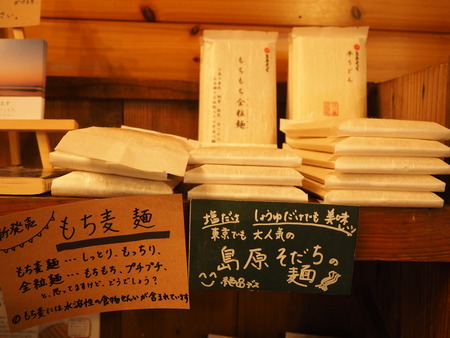 もちもち全粒麺
半うどん
新発売
もち麦 麺
もち麦麺…しっとり、もっちり、
全粒麺…もちもち、プチプチ、
と、思ってますけど、どうでしょう?
もち麦には水溶性の食物せんいが含まれています
塩だけ しょうゆだけでも美味
東京でも 大人気の
島原そだちの
麺